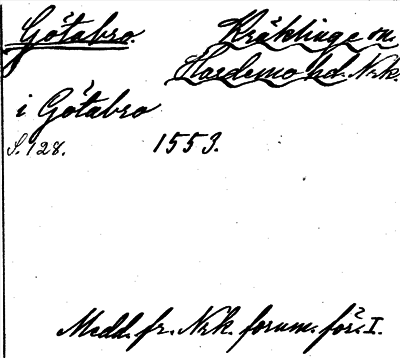 Götabro. Kräklinge sn.
Hardemo hd. Nrk.
i Götabro
S. 128. 1553.
Medd. fr. Nrk. fornm. för. I.